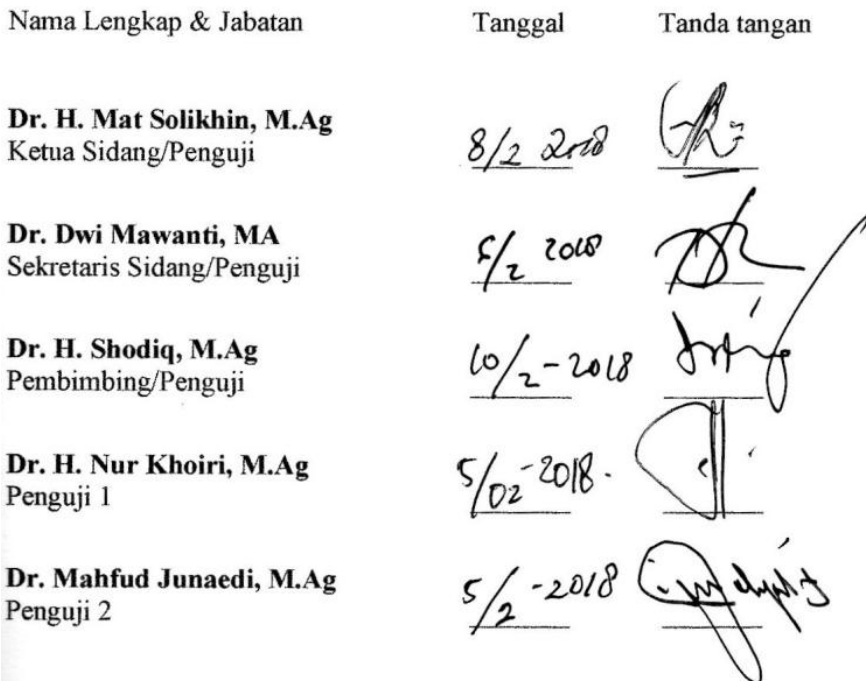 Nama Lengkap & Jabatan Tanggal Tanda tangan
Dr. H. Mat Solikhin, M.Ag
Ketua Sidang/Penguji 8/2 2018
Dr. Dwi Mawanti, MA
Sekretaris Sidang/Penguji 5/2 2018
Dr. H. Shodiq, M.Ag
Pembimbing/Penguji 10/2-2018
Dr. H. Nur Khoiri, M.Ag
Penguji 1 5/02-2018.
Dr. Mahfud Junaedi, M.Ag
Penguji 2 5/2-2018